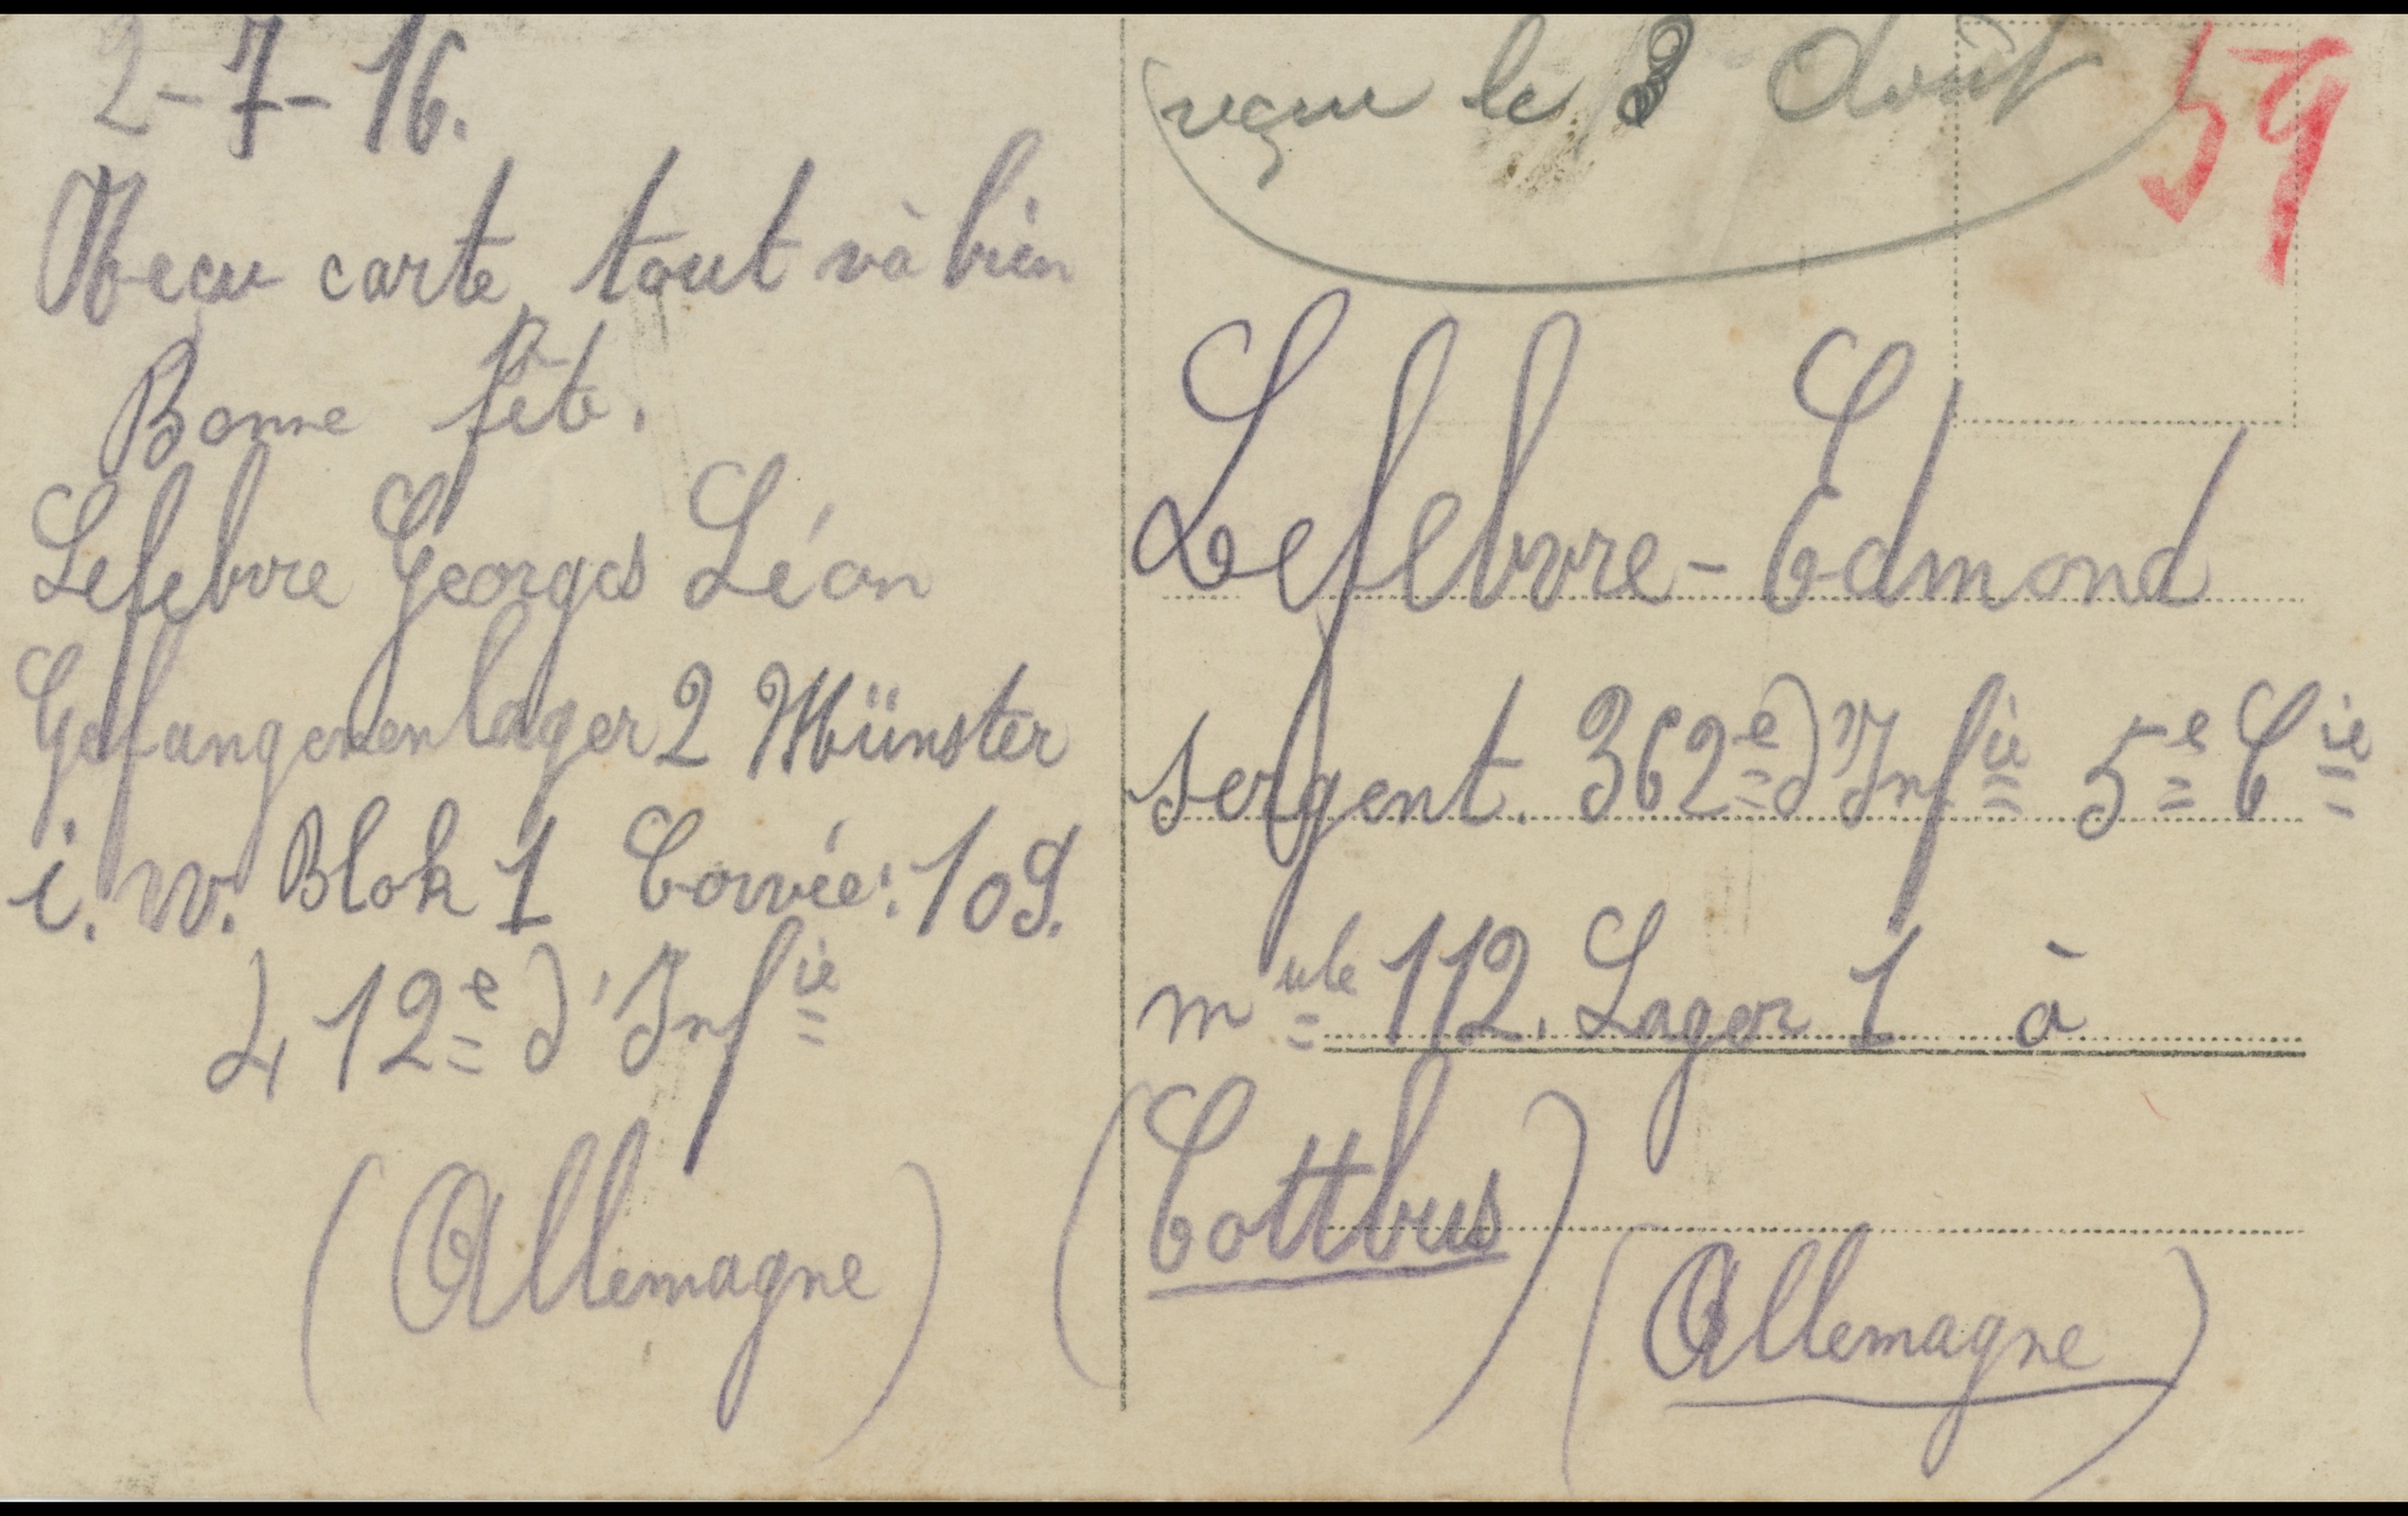 2-7-16.
Reçu carte, tout và bien
Bonne fête.
Lefebvre Georges Léon
Gefangenenlager 2 Münster
i. W. Blok 1 Corvée: 109.
412e d'Infie
(Allemagne)
reçue le 8 Août
59
Lefebvre-Edmond
sergent. 362e d'Infie 5e Cie
mule 112. Lager 1 à
(Cottbus)
(Allemagne)